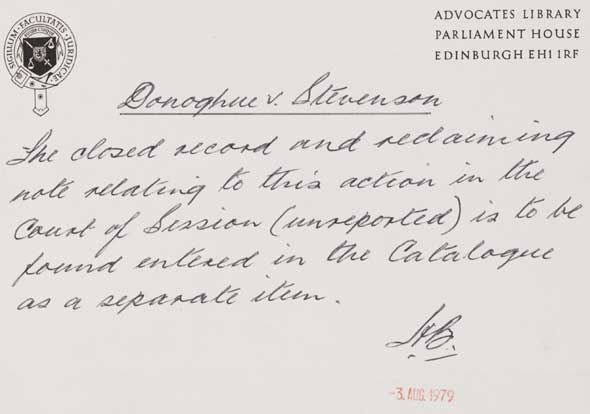 SIGILLUM · FACULTATIS · JURIDICAE ·
ADVOCATES LIBRARY
PARLIAMENT HOUSE
EDINBURGH EH1 1RF
Donoghue v. Stevenson
The closed record and reclaiming
note relating to this action in the
Court of Session (unreported) is to be
found entered in the Catalogue
as a separate item.
-3. AUG. 1979